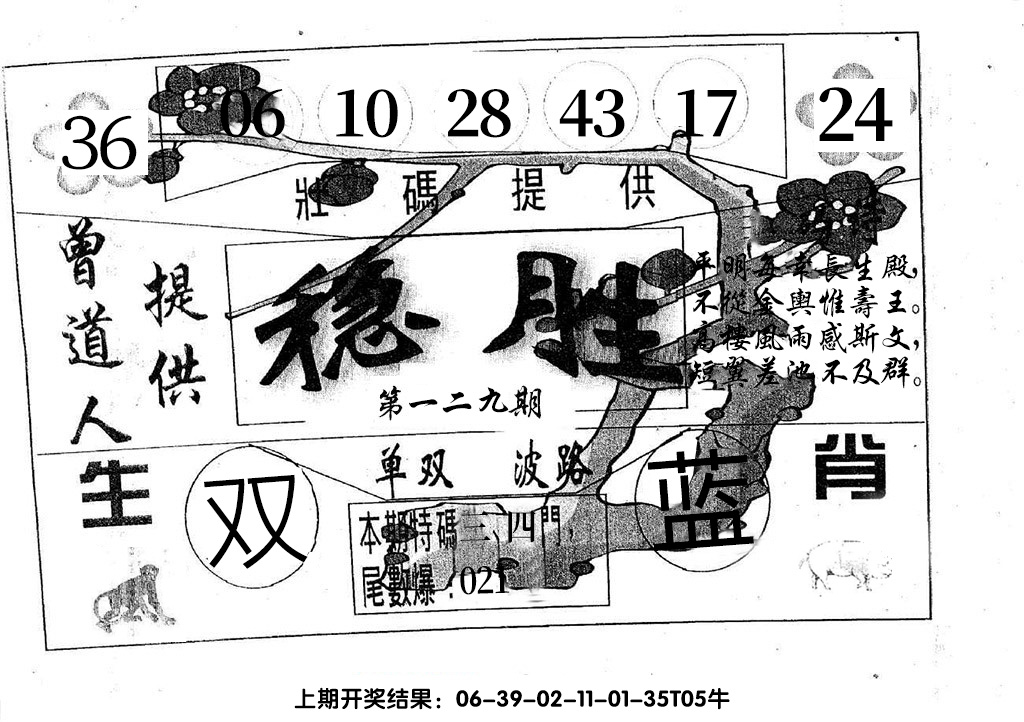 36 06 10 28 43 17 24
壯碼提供
特
曾道人
提供
稳胜
第一二九期
平明每幸長生殿,
不從金輿惟壽王。
高樓風雨感斯文,
短翼差池不及群。
单双 波路
生肖
双
蓝
本期特碼三、四門,
尾數爆:021
上期开奖结果:06-39-02-11-01-35T05牛